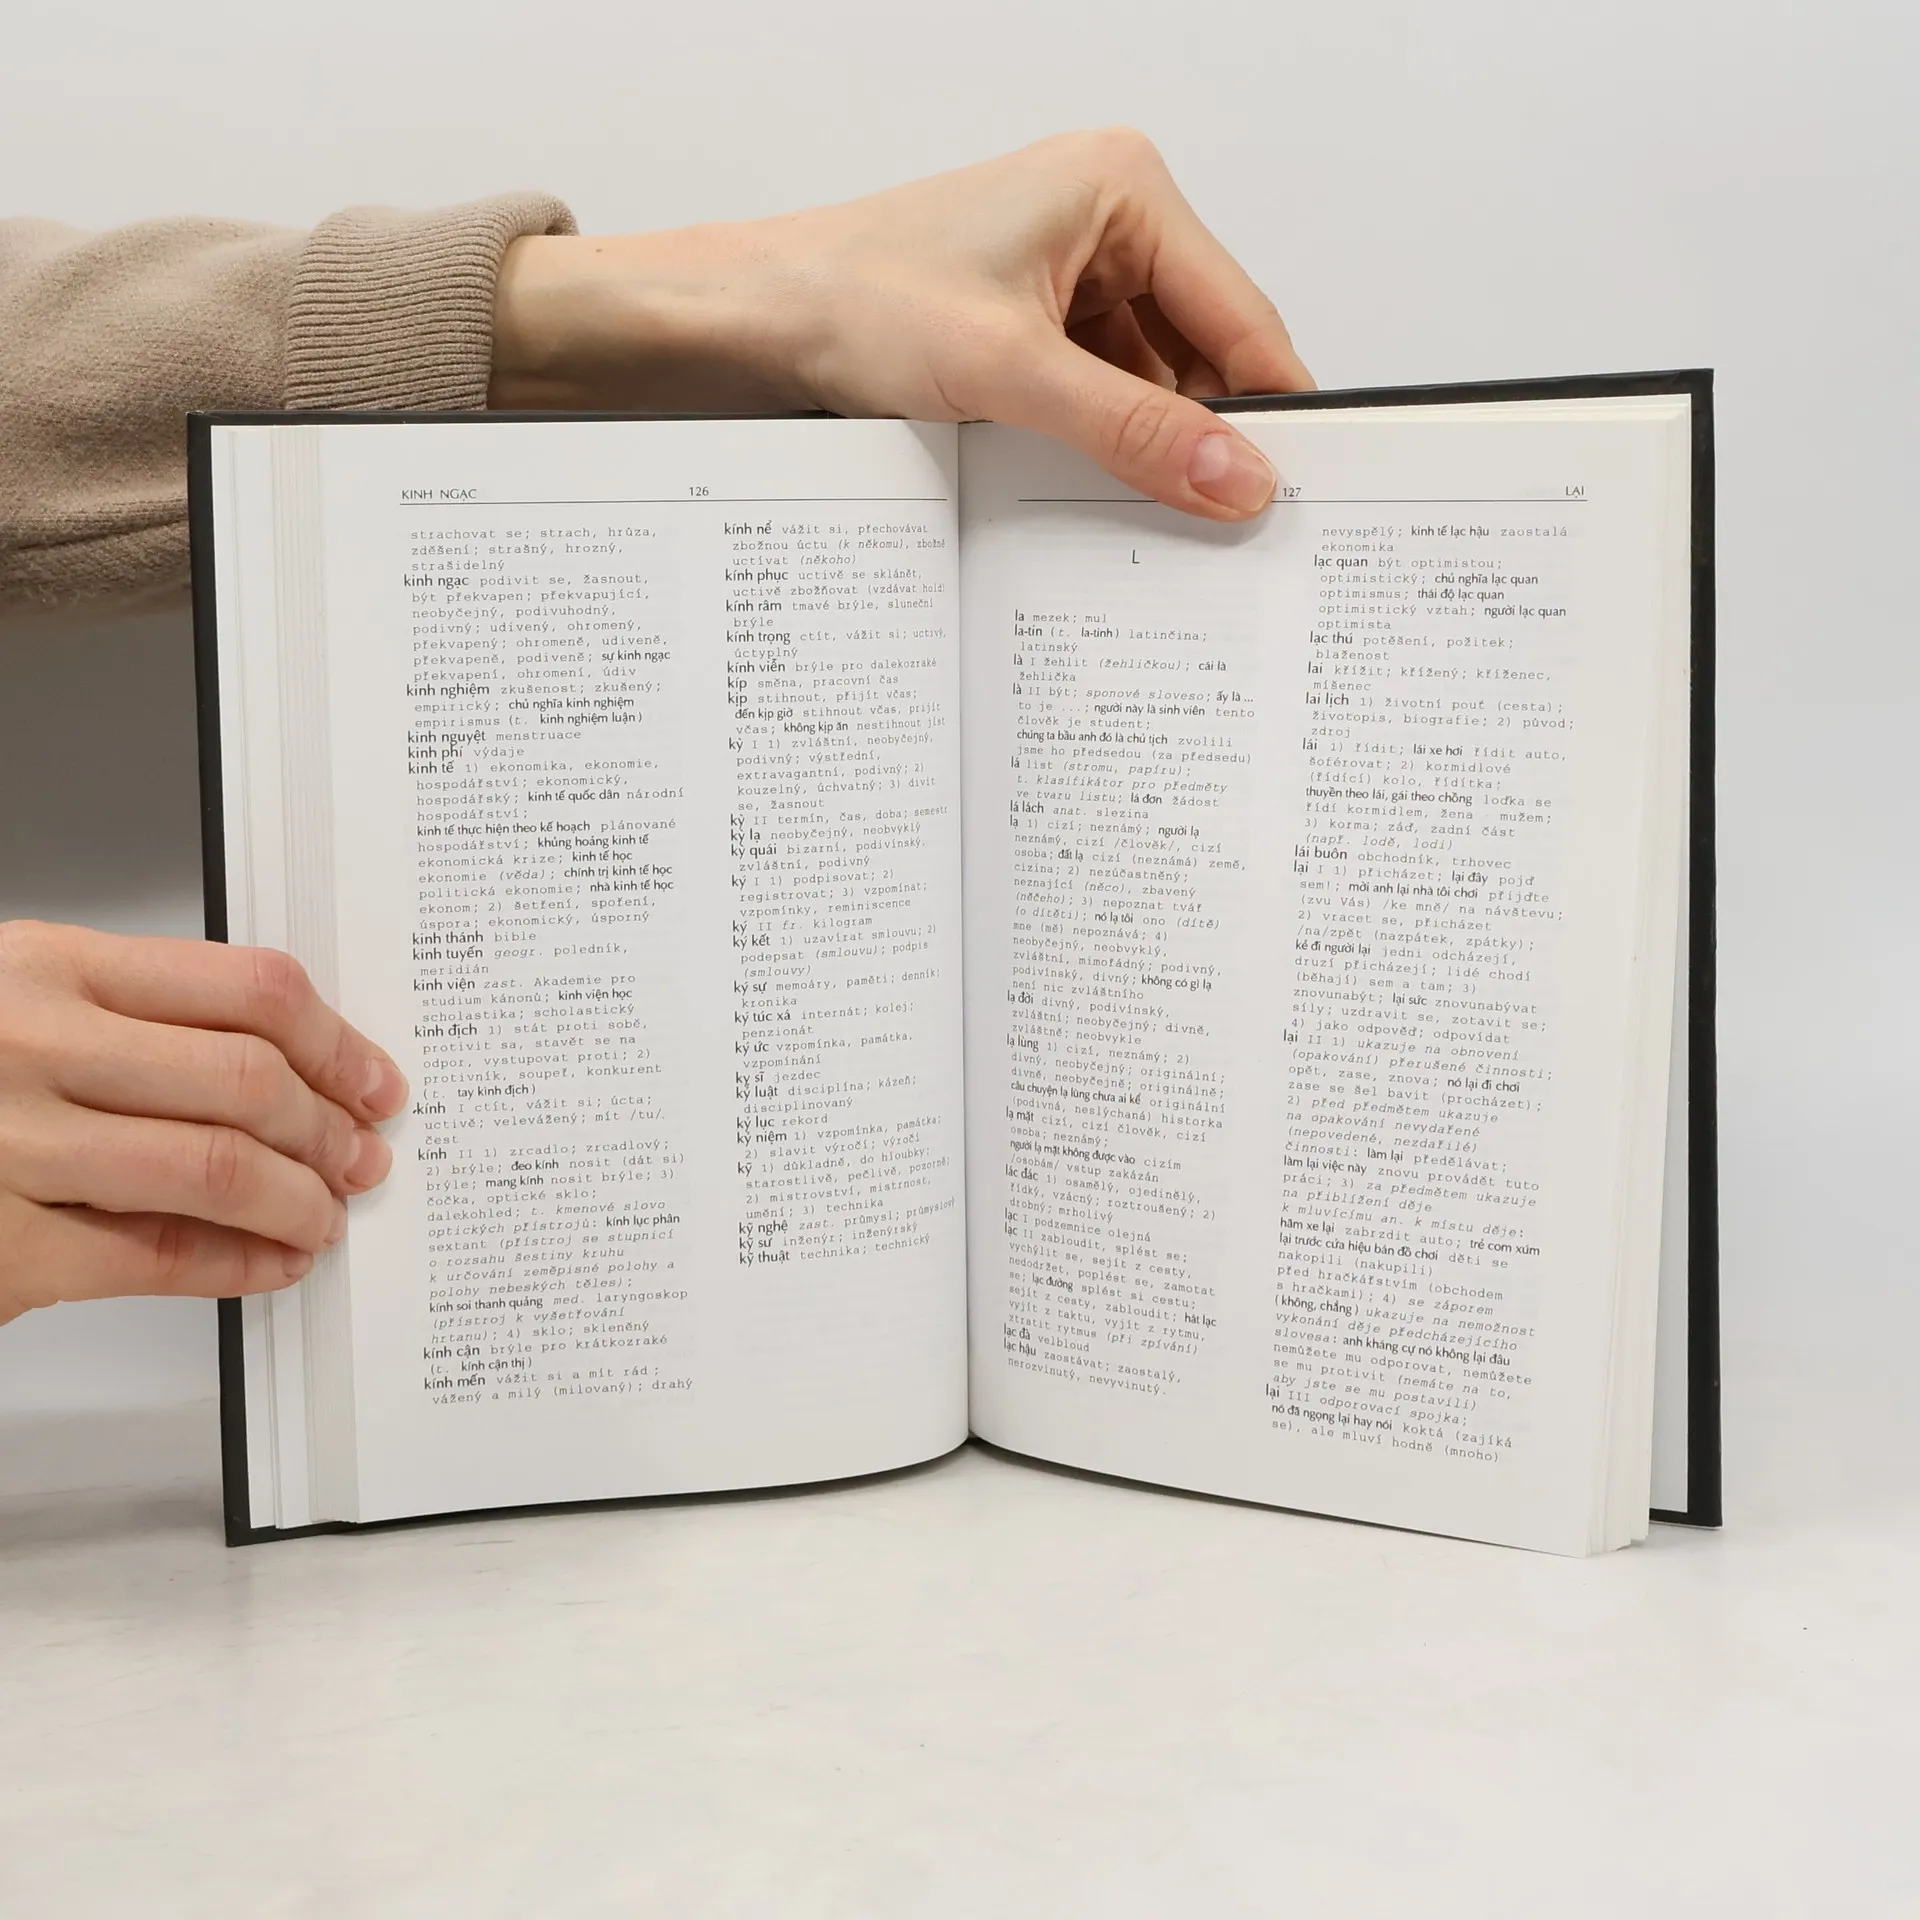 KINH NGẠC 126
strachovat se; strach, hrůza,
zděšení; strašný, hrozný,
strašidelný
kinh ngạc podivit se, žasnout,
být překvapen; překvapující,
neobyčejný, podivuhodný,
podivný; udivený, ohromený,
překvapený; ohromeně, udiveně,
překvapeně, podiveně; sự kinh ngạc
překvapení, ohromení, údiv
kinh nghiệm zkušenost; zkušený;
empirický; chủ nghĩa kinh nghiệm
empirismus (t. kinh nghiệm luận)
kinh nguyệt menstruace
kinh phí výdaje
kinh tế 1) ekonomika, ekonomie,
hospodářství; ekonomický,
hospodářský; kinh tế quốc dân národní
hospodářství;
kinh tế thực hiện theo kế hoạch plánované
hospodářství; khủng hoảng kinh tế
ekonomická krize; kinh tế học
ekonomie (věda); chính trị kinh tế học
politická ekonomie; nhà kinh tế học
ekonom; 2) šetření, spoření,
úspora; ekonomický, úsporný
kinh thánh bible
kinh tuyến geogr. poledník,
meridián
kinh viện zast. Akademie pro
studium kánonů; kinh viện học
scholastika; scholastický
kình địch 1) stát proti sobě,
protivit sa, stavět se na
odpor, vystupovat proti; 2)
protivník, soupeř, konkurent
(t. tay kình địch)
kính I ctít, vážit si; úcta;
uctivě; velevážený; mít /tu/.
čest
kính II 1) zrcadlo; zrcadlový;
2) brýle; đeo kính nosit (dát si)
brýle; mang kính nosit brýle; 3)
čočka, optické sklo;
dalekohled; t. kmenové slovo
optických přístrojů: kính lục phân
sextant (přístroj se stupnicí
o rozsahu šestiny kruhu
k určování zeměpisné polohy a
polohy nebeských těles);
kính soi thanh quảng med. laryngoskop
(přístroj k vyšetřování
hrtanu); 4) sklo; skleněný
kính cận brýle pro krátkozraké
(t. kính cận thị)
kính mến vážit si a mít rád;
vážený a milý (milovaný); drahý
kính nể vážit si, přechovávat
zbožnou úctu (k někomu), zbožně
uctívat (někoho)
kính phục uctivě se sklánět,
uctivě zbožňovat (vzdávat hold)
kính râm tmavé brýle, sluneční
brýle
kính trọng ctít, vážit si; uctivý,
úctyplný
kính viễn brýle pro dalekozraké
kíp směna, pracovní čas
kịp stihnout, přijít včas;
đến kịp giờ stihnout včas, přijít
včas; không kịp ăn nestihnout jíst
kỳ I 1) zvláštní, neobyčejný,
podivný; výstřední,
extravagantní, podivný; 2)
kouzelný, úchvatný; 3) divit
se, žasnout
kỳ II termín, čas, doba; semestr
kỳ lạ neobyčejný, neobvyklý
kỳ quái bizarní, podivínský,
zvláštní, podivný
ký I 1) podpisovat; 2)
registrovat; 3) vzpomínat;
vzpomínky, reminiscence
ký II fr. kilogram
ký kết 1) uzavírat smlouvu; 2)
podepsat (smlouvu); podpis
(smlouvy)
ký sự memoáry, paměti; denník;
kronika
ký túc xá internát; kolej;
penzionát
ký ức vzpomínka, památka,
vzpomínání
kỵ sĩ jezdec
kỷ luật disciplína; kázeň;
disciplinovaný
kỷ lục rekord
kỷ niệm 1) vzpomínka, památka;
2) slavit výročí; výročí
kỹ 1) důkladně, do hloubky;
starostlivě, pečlivě, pozorně;
2) mistrovství, mistrnost,
umění; 3) technika
kỹ nghệ zast. průmysl; průmyslový
kỹ sư inženýr; inženýrský
kỹ thuật technika; technický
127 LẠI
L
la mezek; mul
la-tin (t. la-tinh) latinčina;
latinský
là I žehlit (žehličkou); cái là
žehlička
là II být; sponové sloveso; ấy là ...
to je ...; người này là sinh viên tento
člověk je student;
chúng ta bầu anh đó là chủ tịch zvolili
jsme ho předsedou (za předsedu)
lá list (stromu, papíru);
t. klasifikátor pro předměty
ve tvaru listu; lá đơn žádost
lá lách anat. slezina
lạ 1) cizí; neznámý; người lạ
neznámý, cizí /člověk/, cizí
osoba; đất lạ cizí (neznámá) země,
cizina; 2) nezúčastněný;
neznající (něco), zbavený
(něčeho); 3) nepoznat tvář
(o dítěti); nó lạ tôi ono (dítě)
mne (mě) nepoznává; 4)
neobyčejný, neobvyklý,
zvláštní, mimořádný; podivný,
podivínský, divný; không có gì lạ
není nic zvláštního
lạ đời divný, podivínský,
zvláštní; neobyčejný; divně,
zvláštně; neobvykle
lạ lùng 1) cizí, neznámý; 2)
divný, neobyčejný; originální;
divně, neobyčejně; originálně;
câu chuyện lạ lùng chưa ai kể originální
(podivná, neslýchaná) historka
lạ mặt cizí, cizí člověk, cizí
osoba; neznámý;
người lạ mặt không được vào cizím
/osobám/ vstup zakázán
lác đác 1) osamělý, ojedinělý,
řídký, vzácný; roztroušený; 2)
drobný; mrholivý
lạc I podzemnice olejná
lạc II zabloudit, splést se;
vychýlit se, sejít z cesty,
nedodržet, poplést se, zamotat
se; lạc đường splést si cestu;
sejít z cesty, zabloudit; hát lạc
vyjít z taktu, vyjít z rytmu,
ztratit rytmus (při zpívání)
lạc đà velbloud
lạc hậu zaostávat; zaostalý,
nerozvinutý, nevyvinutý.
nevyspělý; kinh tế lạc hậu zaostalá
ekonomika
lạc quan být optimistou;
optimistický; chủ nghĩa lạc quan
optimismus; thái độ lạc quan
optimistický vztah; người lạc quan
optimista
lạc thú potěšení, požitek;
blaženost
lai křížit; křížený; kříženec,
míšenec
lai lịch 1) životní pouť (cesta);
životopis, biografie; 2) původ;
zdroj
lái 1) řídit; lái xe hơi řídit auto,
šoférovat; 2) kormidlové
(řídící) kolo, řídítka;
thuyền theo lái, gái theo chồng loďka se
řídí kormidlem, žena - mužem;
3) korma; záď, zadní část
(např. lodě, lodi)
lái buôn obchodník, trhovec
lại I 1) přicházet; lại đây pojď
sem!; mời anh lại nhà tôi chơi přijďte
(zvu Vás) /ke mně/ na návštevu;
2) vracet se, přicházet
/na/zpět (nazpátek, zpátky);
kẻ đi người lại jedni odcházejí,
druzí přicházejí; lidé chodí
(běhají) sem a tam; 3)
znovunabýt; lại sức znovunabývat
síly; uzdravit se, zotavit se;
4) jako odpověď; odpovídat
lại II 1) ukazuje na obnovení
(opakování) přerušené činnosti;
opět, zase, znova; nó lại đi chơi
zase se šel bavit (procházet);
2) před předmětem ukazuje
na opakování nevydařené
(nepovedené, nezdařilé)
činnosti: làm lại předělávat;
làm lại việc này znovu provádět tuto
práci; 3) za předmětem ukazuje
na přiblížení děje
k mluvícímu an. k místu děje:
hãm xe lại zabrzdit auto; trẻ com xúm
lại trước cửa hiệu bán đồ chơi děti se
nakopili (nakupili)
před hračkářstvím (obchodem
s hračkami); 4) se záporem
(không, chẳng) ukazuje na nemožnost
vykonání děje předcházejícího
slovesa: anh kháng cự nó không lại đâu
nemůžete mu odporovat, nemůžete
se mu protivit (nemáte na to,
aby jste se mu postavili)
lại III odporovací spojka;
nó đã ngọng lại hay nói koktá (zajíká
se), ale mluví hodně (mnoho)